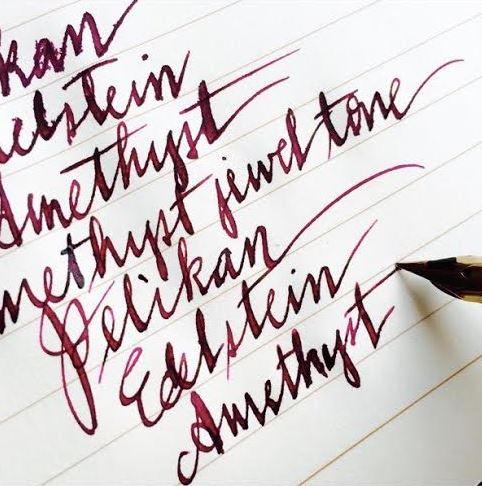 kan
elstein
Amethyst
methyst jewel tone
Pelikan
Edelstein
Amethyst